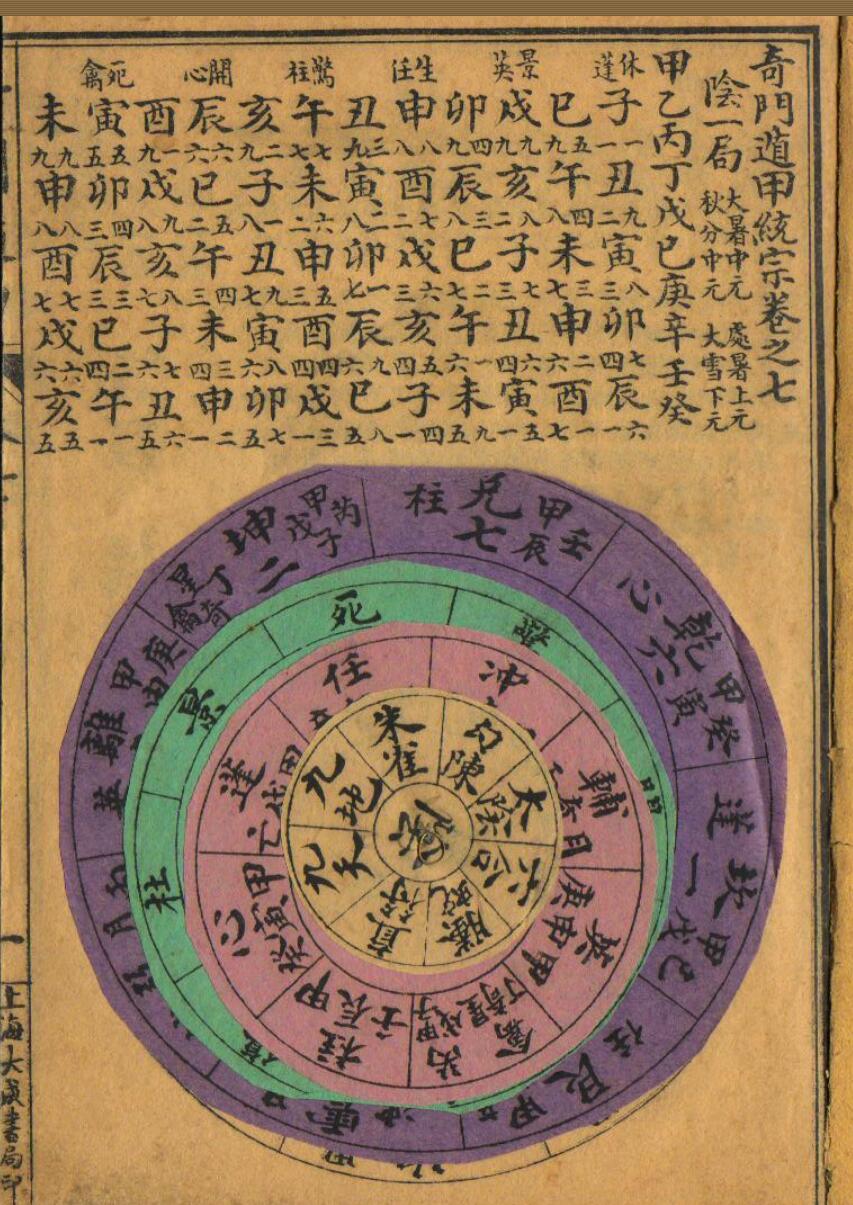 奇門遁甲統宗卷之七
陰一局
大暑中元 處暑上元
秋分中元 大雪下元
甲乙丙丁戊己庚辛壬癸
休蓬
子一一丑九二寅八三卯七四辰六一
巳五九午四八未三七申二六酉一七
景英
戌九九亥八二子七三丑六四寅五一
卯四九辰三八巳二七午一六未九五
生任
申八八酉七二戌六三亥五四子四一
丑三九寅二八卯一七辰九六巳八五
驚柱
午七七未六二申五三酉四四戌三一
亥二九子一八丑九七寅八六卯七五
開心
辰六六巳五二午四三未三四申二一
酉一九戌九八亥八七子七六丑六五
死禽
寅五五卯四三辰三三巳二四午一一
未九九申八八酉七七戌六六亥五五
兌七 柱 甲辰壬
乾六 心 甲寅癸
坎一 蓬 甲戌己
艮 任 甲
離 英 甲 庚
坤二 芮 甲子戊 禽星丁奇
死
景
杜
任
沖
輔
英 甲申庚
芮 甲子戊 禽星丁奇
柱 甲辰壬
心 甲寅癸
蓬 甲戌己
朱雀
勾陳
太陰
六合
螣蛇
直符
九天
九地
一
上海大成書局印